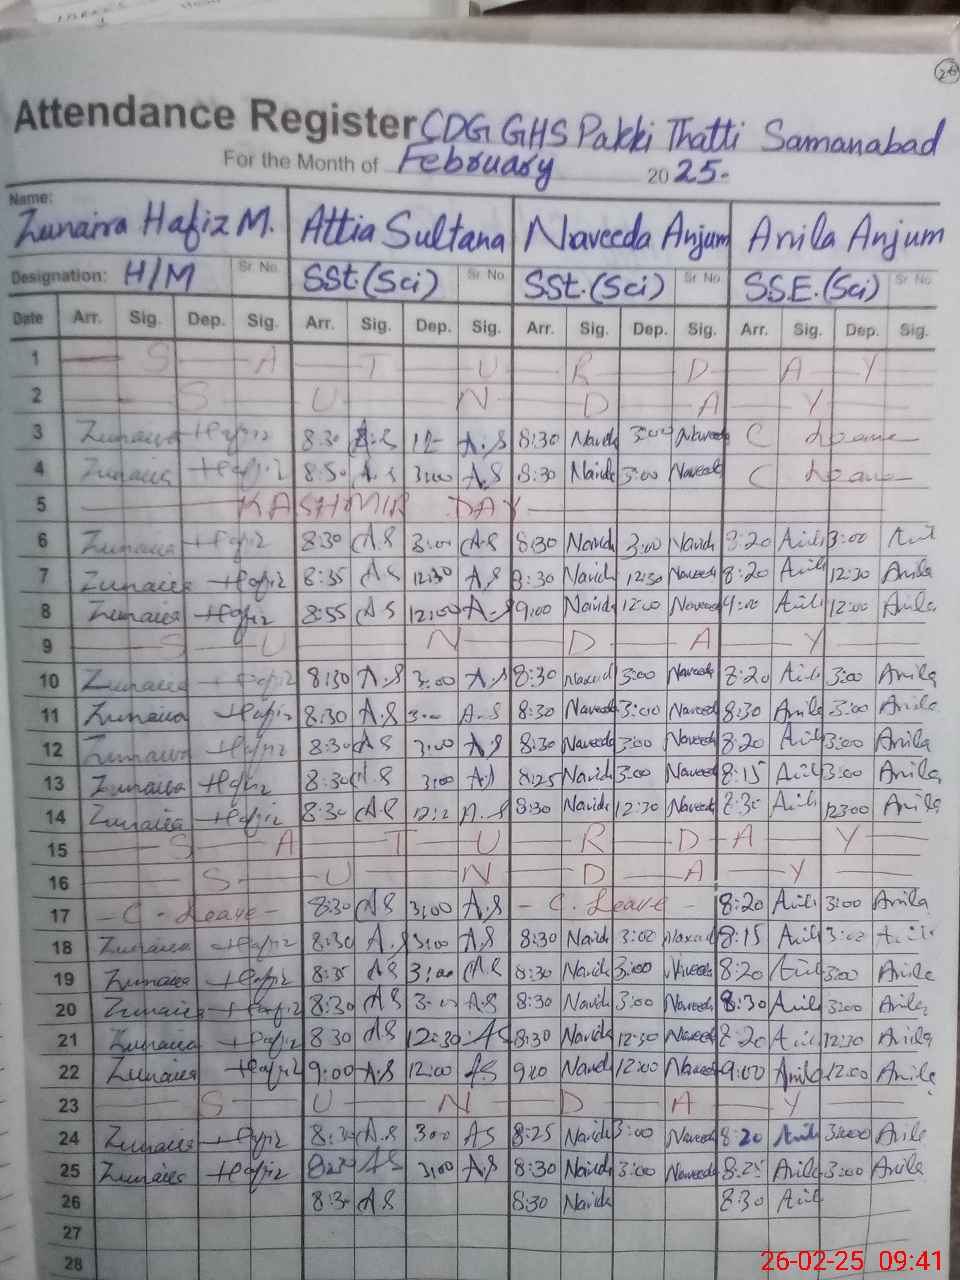 26
Attendance Register CDG GHS Pakki Thatti Samanabad
For the Month of February 2025-
Name: Zunaira Hafiz M. Attia Sultana Naveeda Anjum Anila Anjum
Designation: H/M Sr. No. SSt.(Sci) Sr No SSt.(Sci) Sr No S.S.E.(Sci) Sr No
Date Arr. Sig. Dep. Sig. Arr. Sig. Dep. Sig. Arr. Sig. Dep. Sig. Arr. Sig. Dep. Sig.
1 S A T U R D A Y
2 S U N D A Y
3 Zunaira Hafiz 8:30 A.S 12- A.S 8:30 Navid 3:00 Naveed C Leave
4 Zunaira Hafiz 8:50 A.S 3:00 A.S 8:30 Navid 3:00 Naveed C Leave
5 KASHMIR DAY
6 Zunaira Hafiz 8:30 A.S 3:00 A.S 8:30 Navid 3:00 Navid 8:20 Anil 3:00 Anil
7 Zunaira Hafiz 8:35 AS 12:30 A.S 8:30 Navid 12:30 Naveed 8:20 Anil 12:30 Anila
8 Zunaira Hafiz 8:55 AS 12:00 A.S 9:00 Navid 12:00 Naveed 9:00 Anil 12:00 Anila
9 S U N D A Y
10 Zunaira Hafiz 8:30 A.S 3:00 A.S 8:30 Naveed 3:00 Naveed 8:20 Anil 3:00 Anila
11 Zunaira Hafiz 8:30 A.S 3:00 A.S 8:30 Naveed 3:00 Naveed 8:30 Anila 3:00 Anila
12 Zunaira Hafiz 8:30 AS 3:00 A.S 8:30 Naveed 3:00 Naveed 8:20 Anil 3:00 Anila
13 Zunaira Hafiz 8:30 A.S 3:00 A.S 8:25 Navid 3:00 Naveed 8:15 Anil 3:00 Anila
14 Zunaira Hafiz 8:30 A.S A.S 8:30 Navid 12:30 Naveed 8:30 Anil Anila
15 S A T U R D A Y
16 S U N D A Y
17 - C. Leave - 8:30 AS 3:00 A.S - C. Leave - 8:20 Anil 3:00 Anila
18 Zunaira Hafiz 8:30 A.S 3:00 AS 8:30 Navid 3:00 Naveed 8:15 Anil 3:00 Anil
19 Zunaira Hafiz 8:35 AS 3:00 A.S 8:30 Navid 3:00 Naveed 8:20 Anil 3:00 Anila
20 Zunaira Hafiz 8:30 AS 3:00 A.S 8:30 Navid 3:00 Naveed 8:30 Anil 3:00 Anila
21 Zunaira Hafiz 8:30 AS 12:30 AS 8:30 Navid 12:30 Naveed 8:20 Anil 12:30 Anila
22 Zunaira Hafiz 9:00 A.S 12:00 AS 9:00 Navid 12:00 Naveed 9:00 Anila 12:00 Anila
23 S U N D A Y
24 Zunaira Hafiz 8:30 A.S 3:00 AS 8:25 Navid 3:00 Naveed 8:20 Anil 3:00 Anila
25 Zunaira Hafiz 8:30 AS 3:00 A.S 8:30 Navid 3:00 Naveed 8:25 Anila 3:00 Anila
26 8:30 A.S 8:30 Navid 8:30 Anil
27
28
26-02-25 09:41